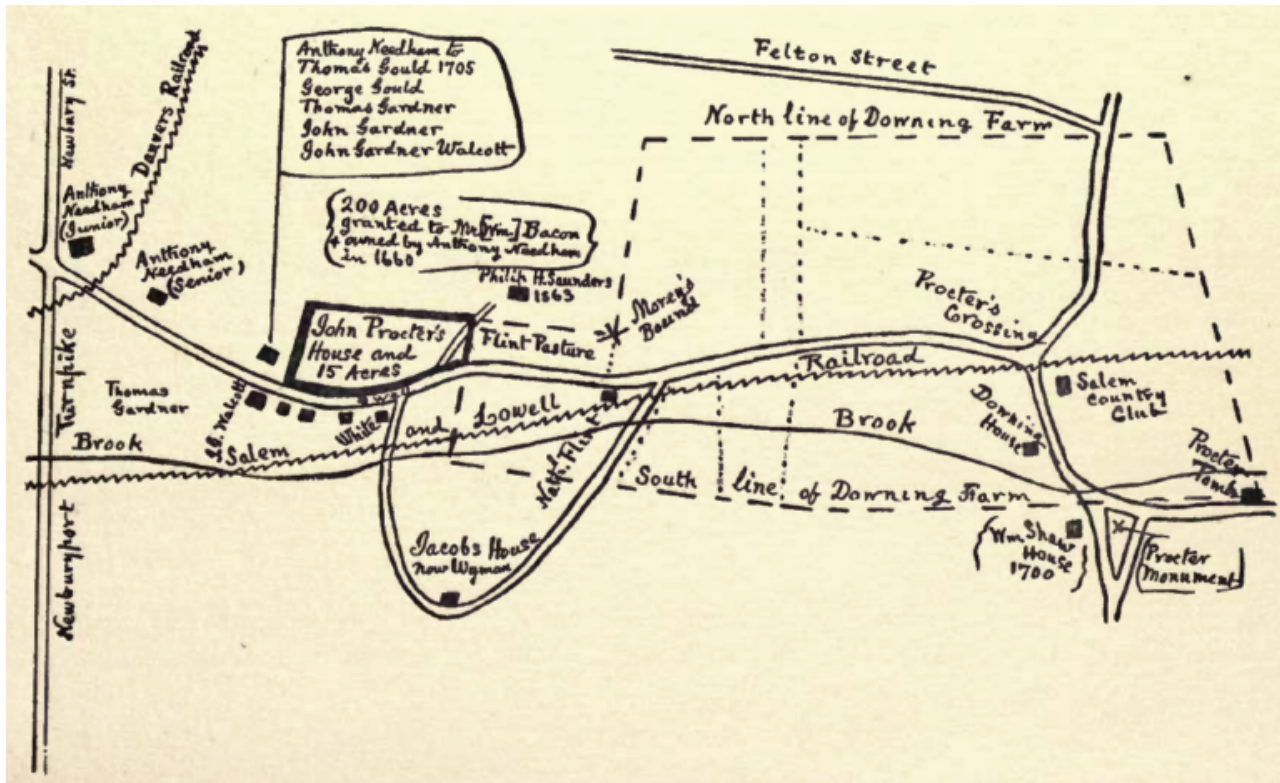 Newbury St.
Danvers Railroad
Anthony Needham to
Thomas Gould 1705
George Gould
Thomas Gardner
John Gardner
John Gardner Walcott
Felton Street
North line of Downing Farm
Anthony
Needham
(Junior)
Anthony
Needham
(Senior)
200 Acres
granted to Mr [Wm] Bacon
+ owned by Anthony Needham
in 1660
Philip H. Saunders
1863
Morey's
Bound
Procter's
Crossing
John Procter's
House and
15 Acres
Flint Pasture
Railroad
Thomas
Gardner
Walcott
White
and Lowell
Salem
Brook
Brook
Downing
House
Salem
Country
Club
Procter
Tomb
Natl. Flint
South line of Downing Farm
Jacobs House
now Wyman
Wm Shaw
House
1700
Procter
Monument
Newburyport Turnpike